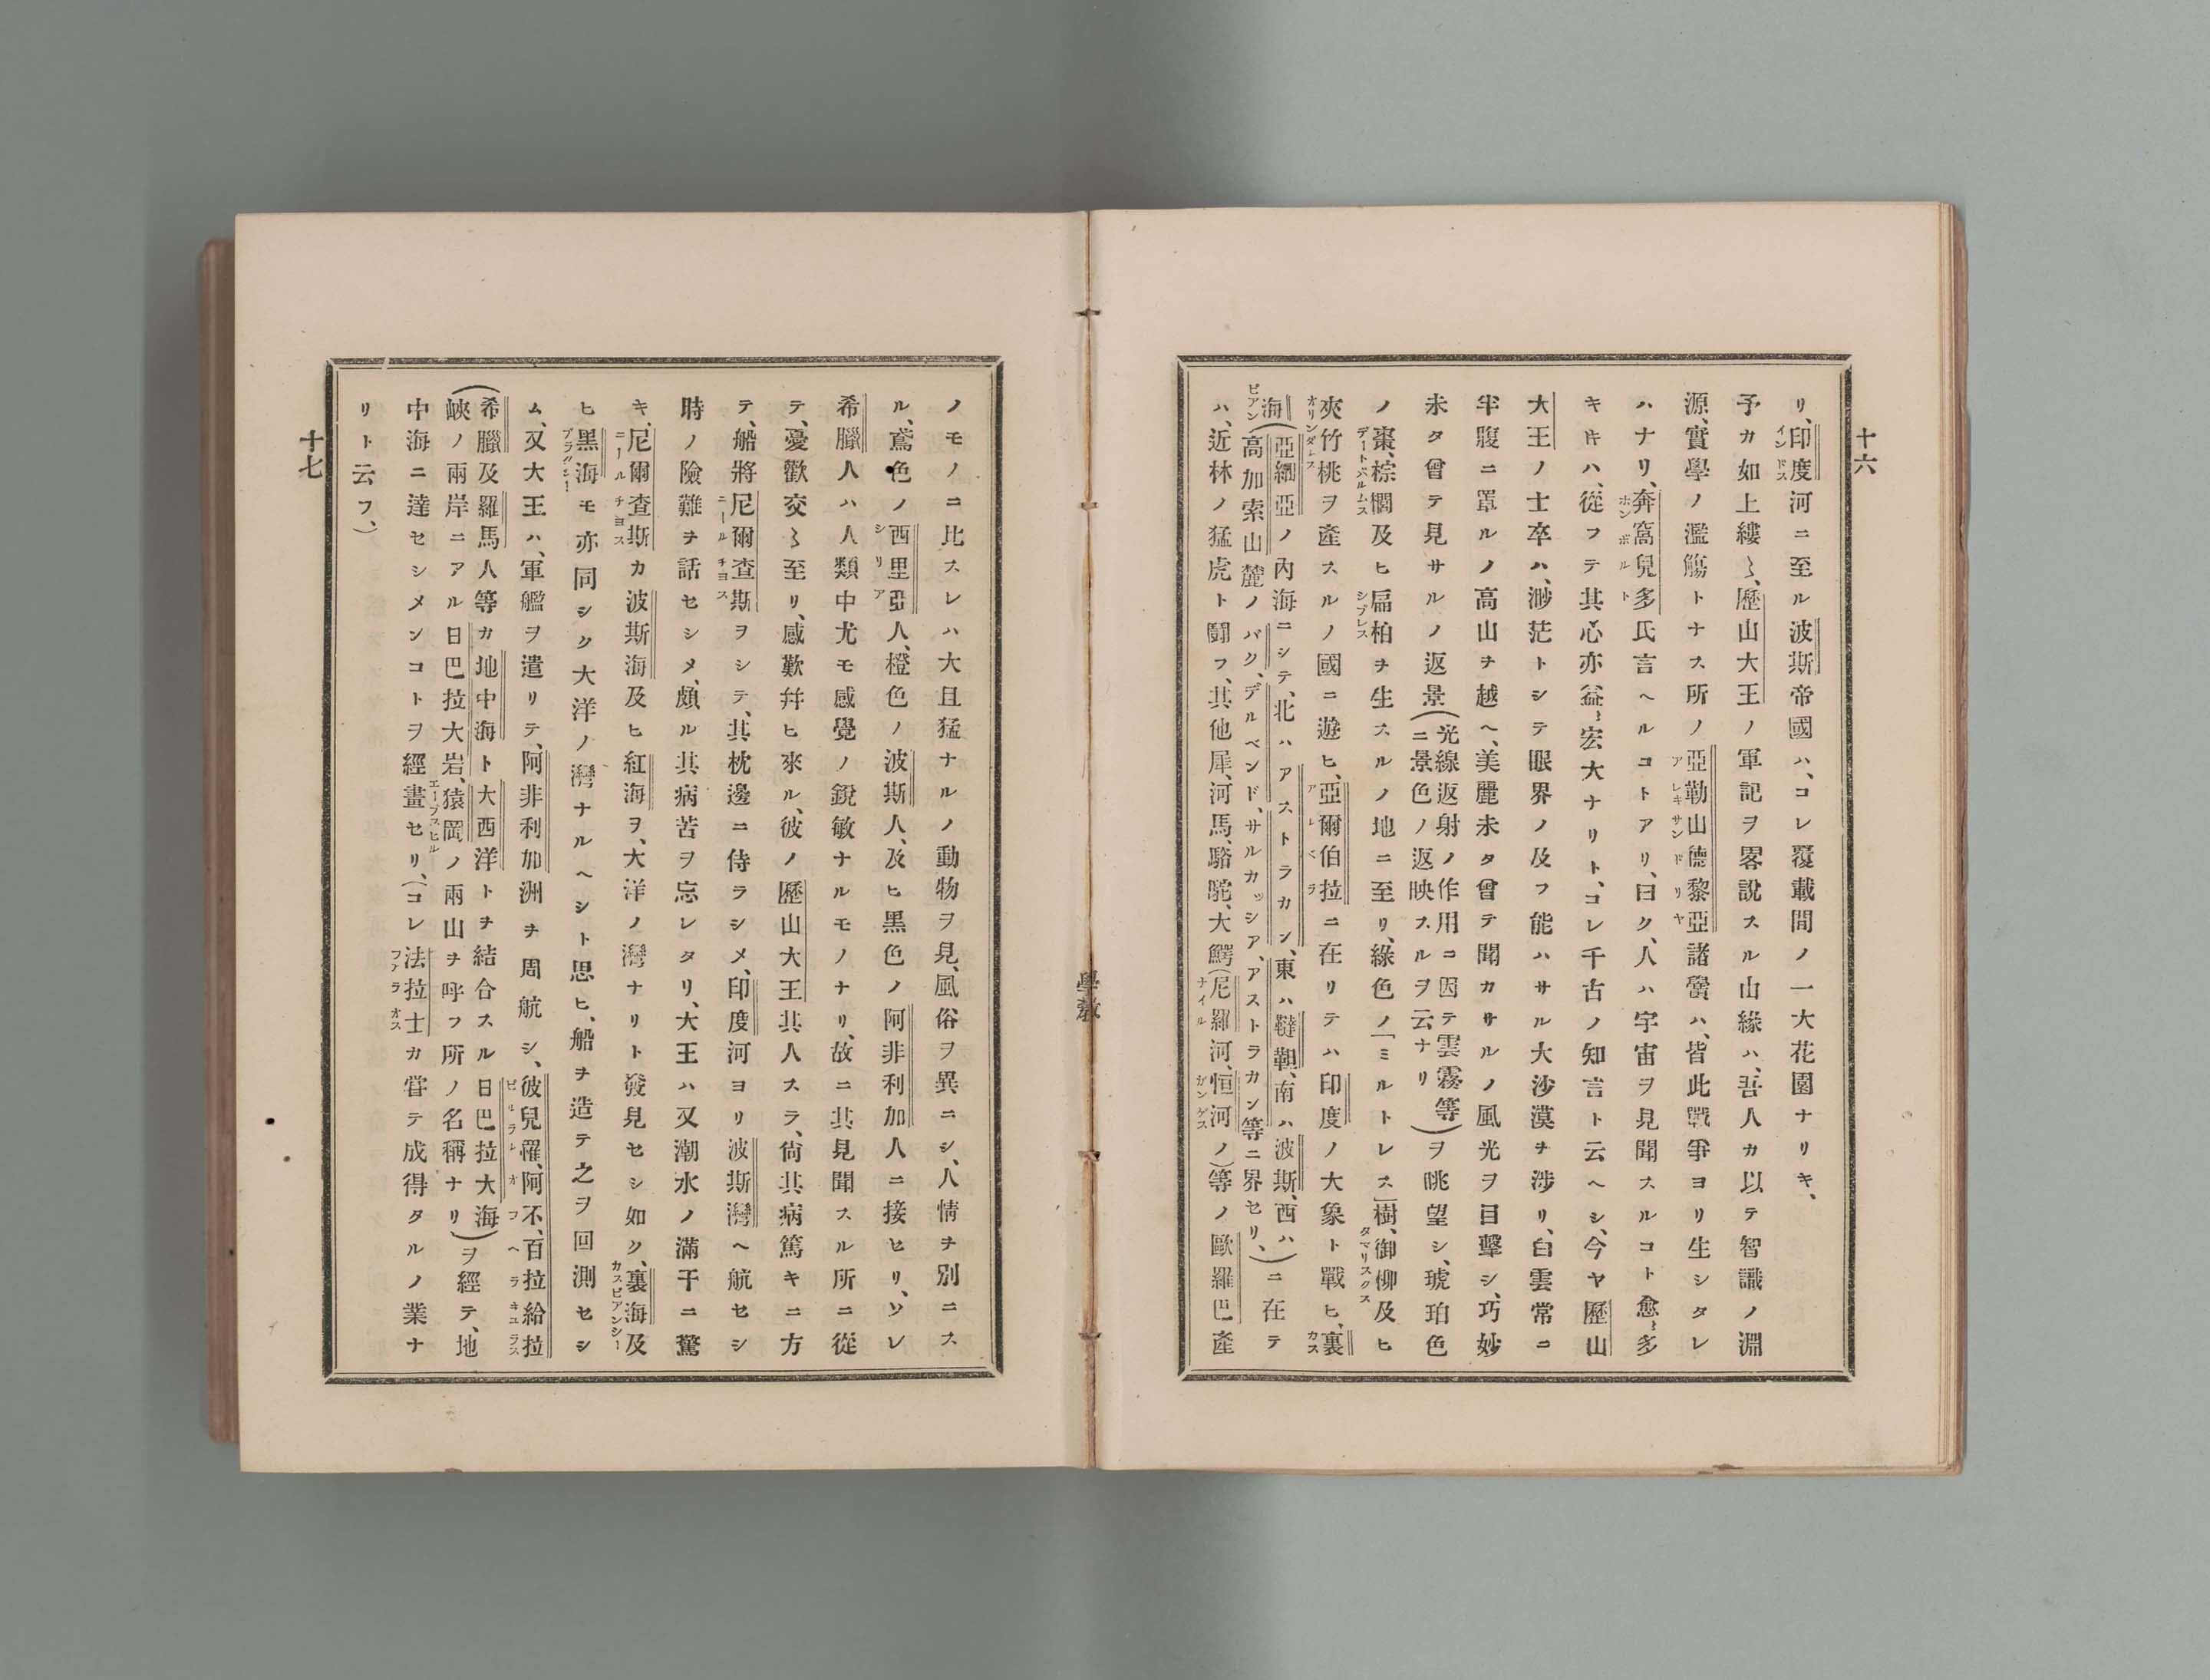 十六
リ、印度河ニ至ル波斯帝國ハ、コレ覆載間ノ一大花園ナリキ、
インドス
予カ如上縷〻、歷山大王ノ軍記ヲ畧說スル山緣ハ、吾人カ以テ智識ノ淵
源、實學ノ濫觴トナス所ノ亞勒山德黎亞諸黌ハ、皆此戰爭ヨリ生シタレ
アレキサンドリヤ
ハナリ、奔窩兒多氏言ヘルコトアリ、曰ク、人ハ宇宙ヲ見聞スルコト愈〻多
ホンボルト
キトキハ、從フテ其心亦益〻宏大ナリト、コレ千古ノ知言ト云ヘシ、今ヤ歷山
大王ノ士卒ハ、渺茫トシテ眼界ノ及フ能ハサル大沙漠ヲ涉リ、白雲常ニ
半腹ニ罩ルノ高山ヲ越ヘ、美麗未タ曾テ聞カサルノ風光ヲ目擊シ、巧妙
未タ曾テ見サルノ返景(光線返射ノ作用ニ因テ雲霧等
ニ景色ノ返映スルヲ云ナリ)ヲ眺望シ、琥珀色
ノ棗、棕櫚及ヒ扁柏ヲ生スルノ地ニ至リ、綠色ノ「ミルトレス」樹、御柳及ヒ
デートパルムス シプレス タマリスクス
夾竹桃ヲ產スルノ國ニ遊ヒ、亞爾伯拉ニ在リテハ印度ノ大象ト戰ヒ、裏
オリンダレス アルベラ カス
海(亞細亞ノ內海ニシテ、北ハアストラカン、東ハ韃靼、南ハ波斯、西ハ
高加索山麓ノバク、デルベンド、サルカッシア、アストラカン等ニ界セリ、)ニ在テ
ピアン
ハ、近林ノ猛虎ト鬪フ、其他犀、河馬、駱駝、大鰐(尼羅河、恒河ノ)等ノ歐羅巴產
ナイル ガンゲス
學敎
ノモノニ比スレハ大且猛ナルノ動物ヲ見、風俗ヲ異ニシ、人情ヲ別ニス
ル、鳶色ノ西里亞人、橙色ノ波斯人、及ヒ黑色ノ阿非利加人ニ接セリ、ソレ
シリア
希臘人ハ人類中尤モ感覺ノ銳敏ナルモノナリ、故ニ其見聞スル所ニ從
テ、憂歡交〻至リ、感歎幷ヒ來ル、彼ノ歷山大王其人スラ、尙其病篤キニ方
テ、船將尼爾查斯ヲシテ、其枕邊ニ侍ラシメ、印度河ヨリ波斯灣ヘ航セシ
ニールチヨス
時ノ險難ヲ話セシメ、頗ル其病苦ヲ忘レタリ、大王ハ又潮水ノ滿干ニ驚
キ、尼爾查斯カ波斯海及ヒ紅海ヲ、大洋ノ灣ナリト發見セシ如ク、裏海及
ニールチヨス カスピアンシー
ヒ黑海モ亦同シク大洋ノ灣ナルヘシト思ヒ、船ヲ造テ之ヲ回測セシ
ブラックシー
ム、又大王ハ、軍艦ヲ遣リテ、阿非利加洲ヲ周航シ、彼兒羅、阿不、百拉給拉
ピルラレオフヘラキユラス
(希臘及羅馬人等カ地中海ト大西洋トヲ結合スル日巴拉大海
峽ノ兩岸ニアル日巴拉大岩、猿岡ノ兩山ヲ呼フ所ノ名稱ナリ)ヲ經テ、地
エープスヒル
中海ニ達セシメンコトヲ經畫セリ、(コレ法拉士カ嘗テ成得タルノ業ナ
ファラオス
リト云フ、)
十七